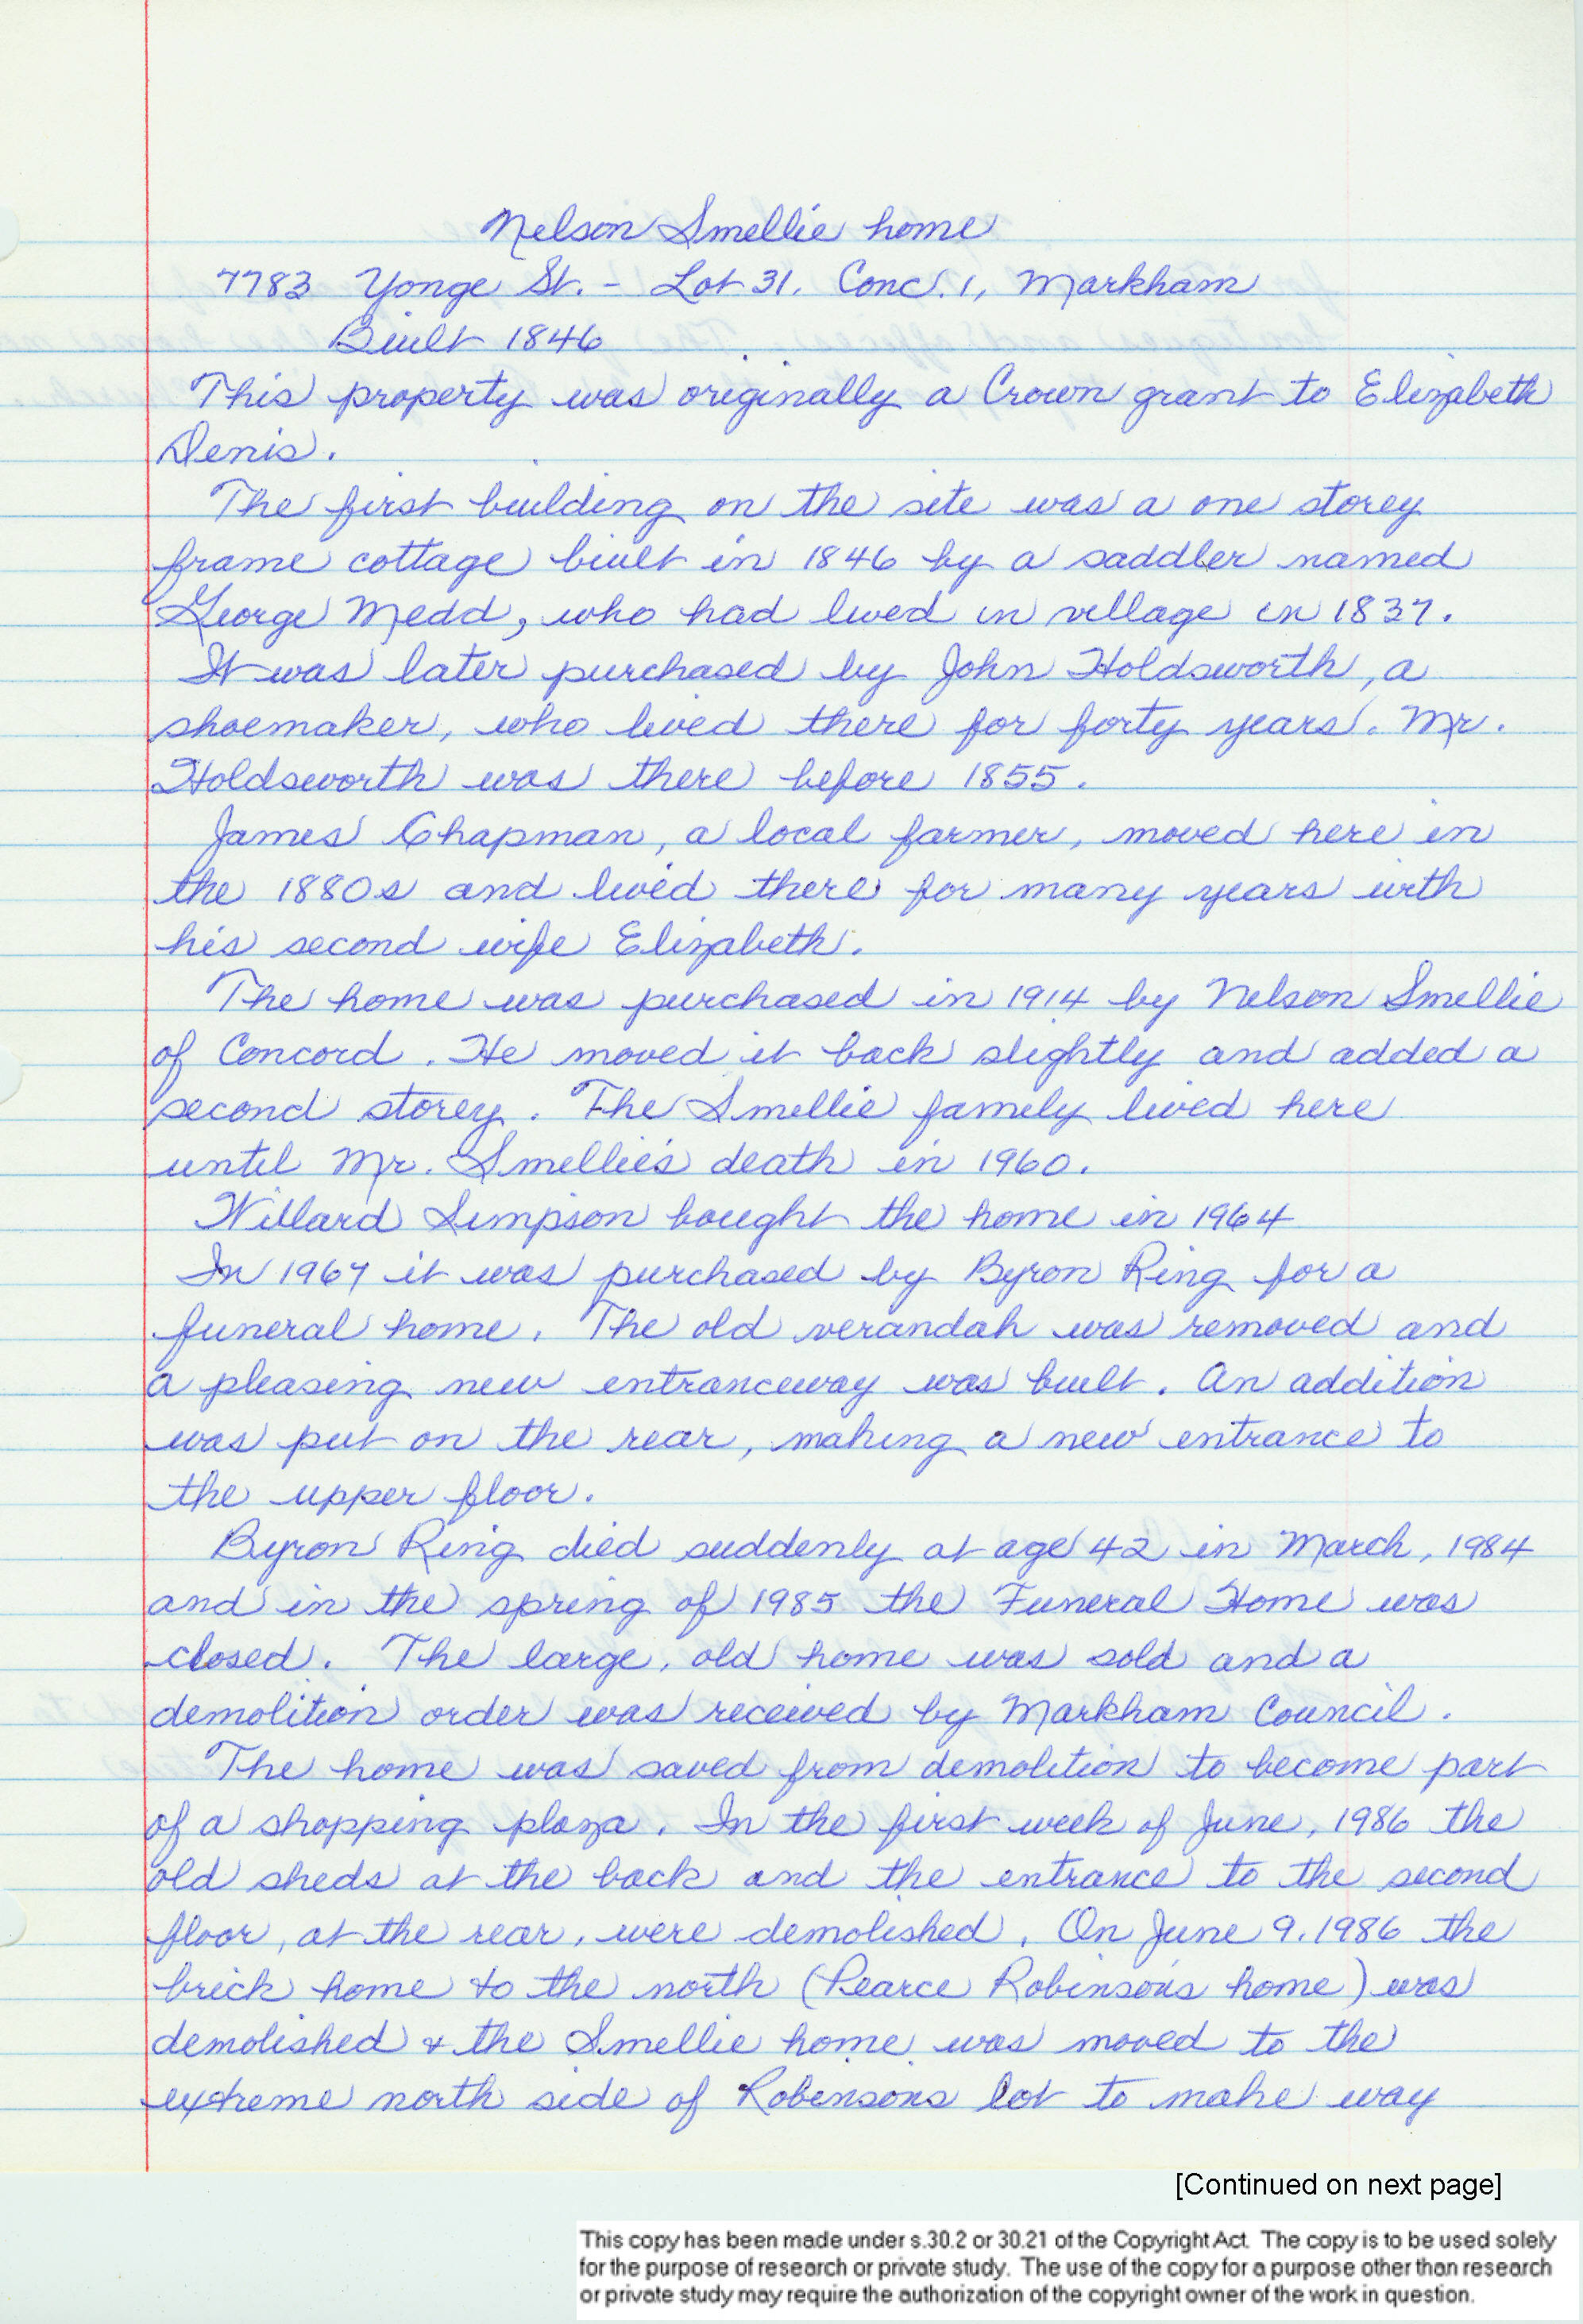 Nelson Smellie home
7783 Yonge St. - Lot 31. Conc. 1, Markham
Built 1846
This property was originally a Crown grant to Elizabeth
Denis.
The first building on the site was a one storey
frame cottage built in 1846 by a saddler named
George Medd, who had lived in village in 1837.
It was later purchased by John Holdsworth, a
shoemaker, who lived there for forty years. Mr.
Holdsworth was there before 1855.
James Chapman, a local farmer, moved here in
the 1880s and lived there for many years with
his second wife Elizabeth.
The home was purchased in 1914 by Nelson Smellie
of Concord. He moved it back slightly and added a
second storey. The Smellie family lived here
until Mr. Smellie's death in 1960.
Willard Simpson bought the home in 1964
In 1967 it was purchased by Byron Ring for a
funeral home. The old verandah was removed and
a pleasing new entranceway was built. An addition
was put on the rear, making a new entrance to
the upper floor.
Byron Ring died suddenly at age 42 in March, 1984
and in the spring of 1985 the Funeral Home was
closed. The large, old home was sold and a
demolition order was received by Markham Council.
The home was saved from demolition to become part
of a shopping plaza. In the first week of June, 1986 the
old sheds at the back and the entrance to the second
floor, at the rear, were demolished. On June 9. 1986 the
brick home to the north (Pearce Robinson's home) was
demolished & the Smellie home was moved to the
extreme north side of Robinsons lot to make way
[Continued on next page]
This copy has been made under s.30.2 or 30.21 of the Copyright Act. The copy is to be used solely
for the purpose of research or private study. The use of the copy for a purpose other than research
or private study may require the authorization of the copyright owner of the work in question.